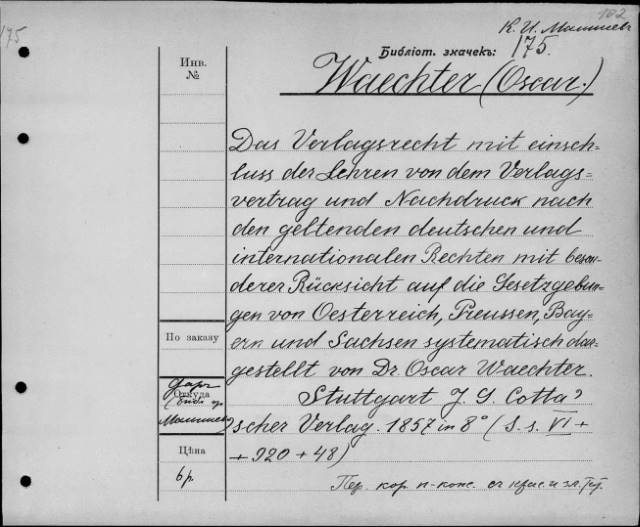 102
К. И. Малышевъ
175
Библіот. значекъ:
175.
Waechter (Oscar.)
Инв.
№
Das Verlagsrecht mit einsch-
luss der Lehren von dem Verlags=
vertrag und Nachdruck nach
den geltenden deutschen und
internationalen Rechten mit beson-
derer Rücksicht auf die Gesetzgebun-
gen von Oesterreich, Preussen, Bay=
ern und Sachsen systematisch dar-
gestellt von Dr. Oscar Waechter.
Stuttgart J. G. Cotta'
scher Verlag. 1857 in 8° (S. s. VI +
+ 920 + 48)
По заказу
даръ
Откуда
Малышев
Цѣна
6 р.
Пер. кор. п-кож. съ крас. и зл. тит.